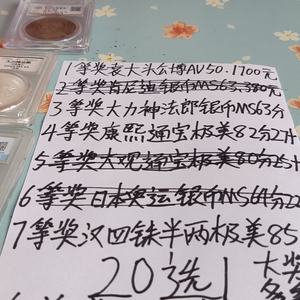 1等奖袁大头公博AV50.1700元
2等奖肯尼迪银币MS63.380元
3等奖大力神法郎银币MS63分
4等奖康熙通宝极美82分2
5等奖大观通宝极美80分25
6等奖日本奥运银币MS64分22
7等奖汉四铢半两极美85
20选1
大奖